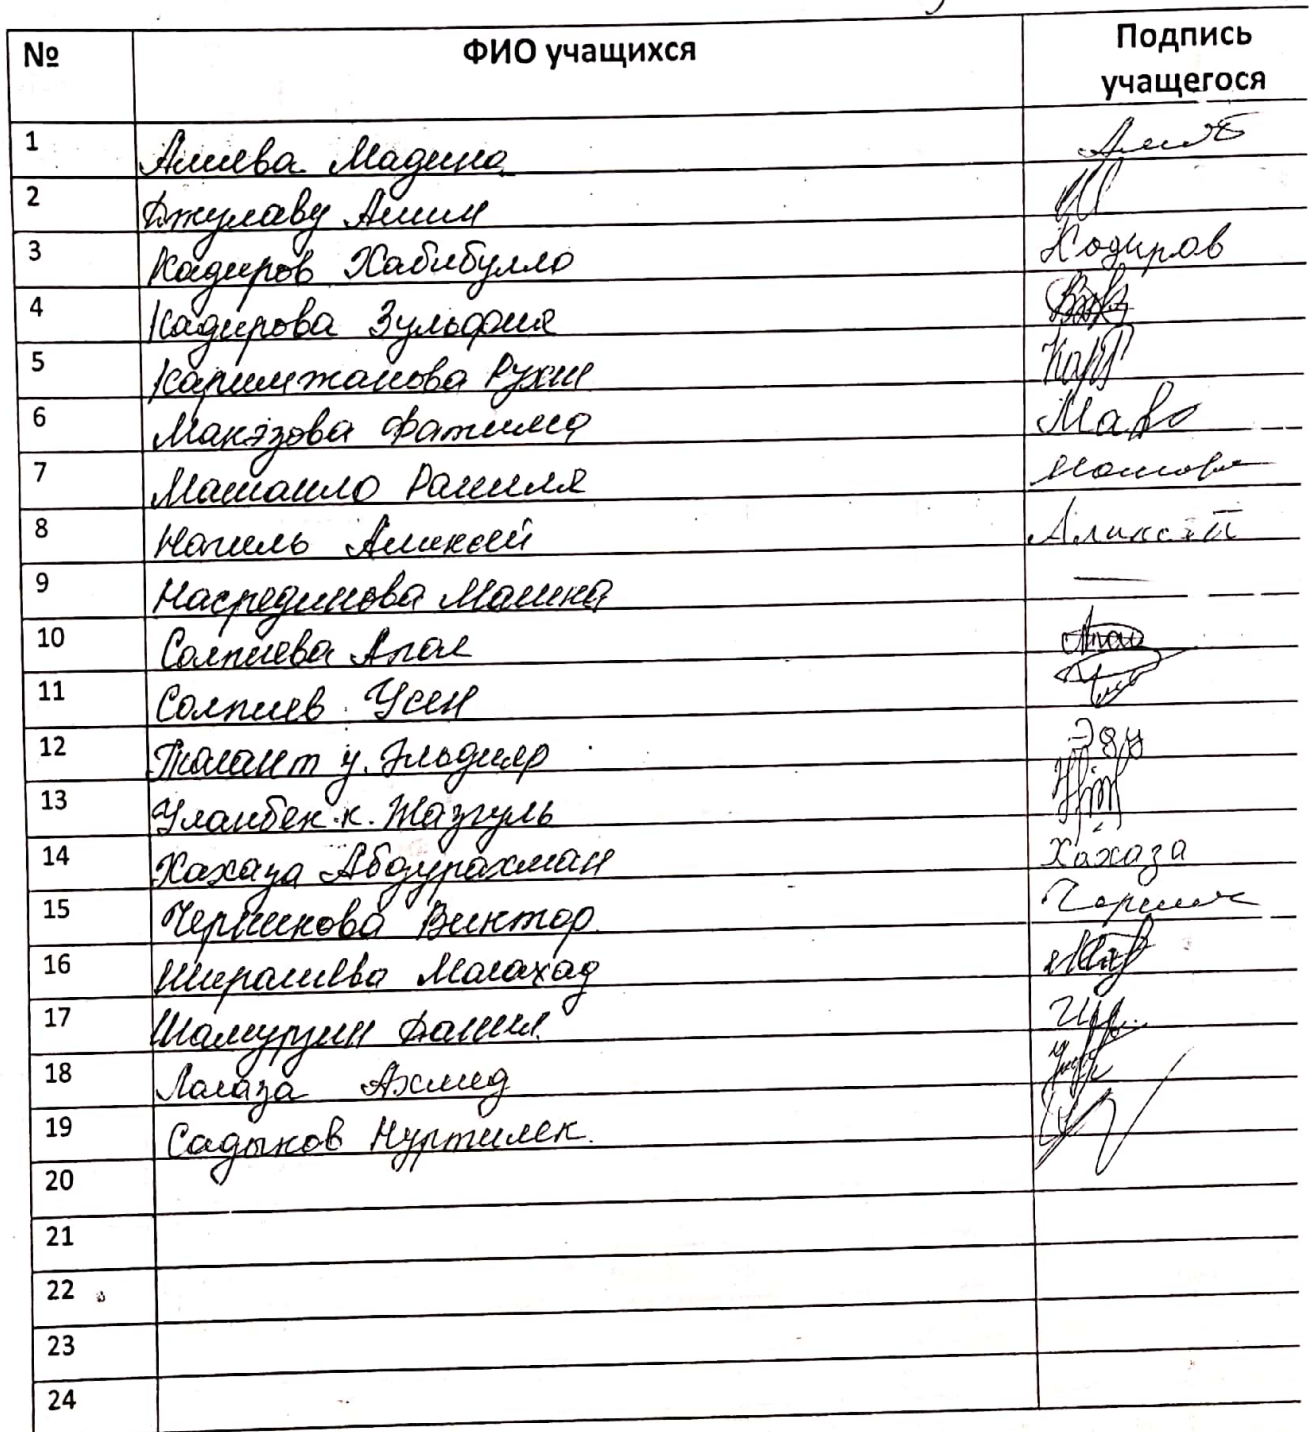 № ФИО учащихся Подпись учащегося
1 Алиева Мадина
2 Джулаву Амин
3 Кадиров Хабибулло Кодиров
4 Кадирова Зульфия
5 Каримжанова Рухш
6 Макэзова Фатима
7 Машанло Рамиля
8 Нагиль Аликсей Аликсэй
9 Насрединова Малика —
10 Солпиева Апал
11 Солпиев Усен
12 Талант у. Эльдияр Эди
13 Уланбек к. Жазгуль
14 Хахаза Абдурахман Хахаза
15 Черникова Виктор
16 Ширалиева Малахад
17 Шамурзин Данил
18 Лалаза Ахмед
19 Садыков Нуртилек.
20
21
22
23
24